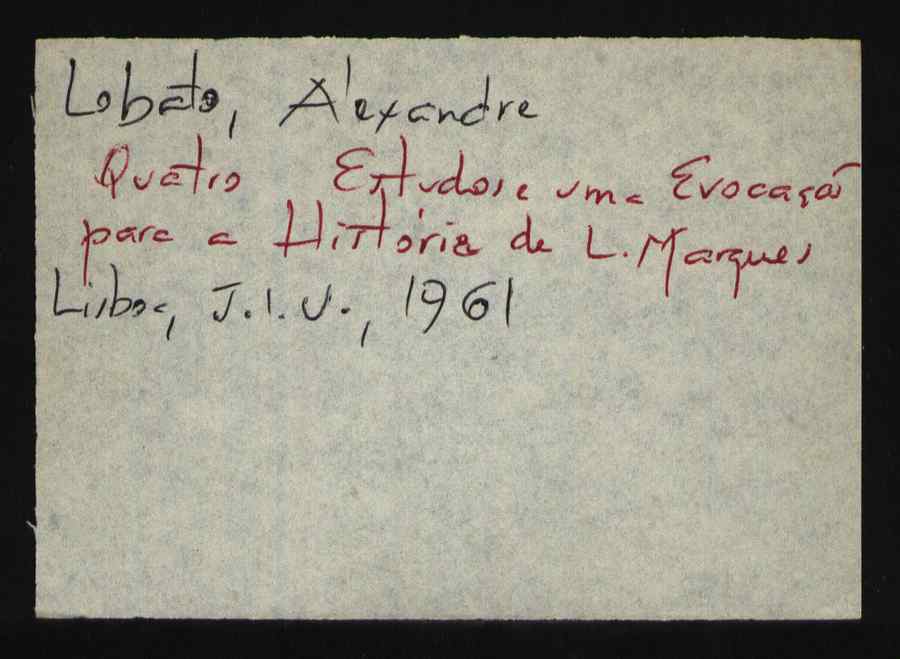 Lobato, Alexandre
Quatro Estudos e uma Evocação
para a História de L. Marques
Lisboa, J.I.U., 1961